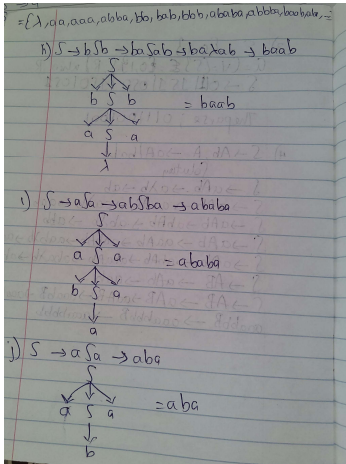 ={λ, aa, aaa, abba, bb, bab, bbb, ababa, abbba, baab, aba,
h) S → bSb → baSab → baλab → baab
S
b S b = baab
a S a
λ
i) S → aSa → abSba → ababa
S
a S a = ababa
b S a
a
j) S → aSa → aba
S
a S a = aba
b